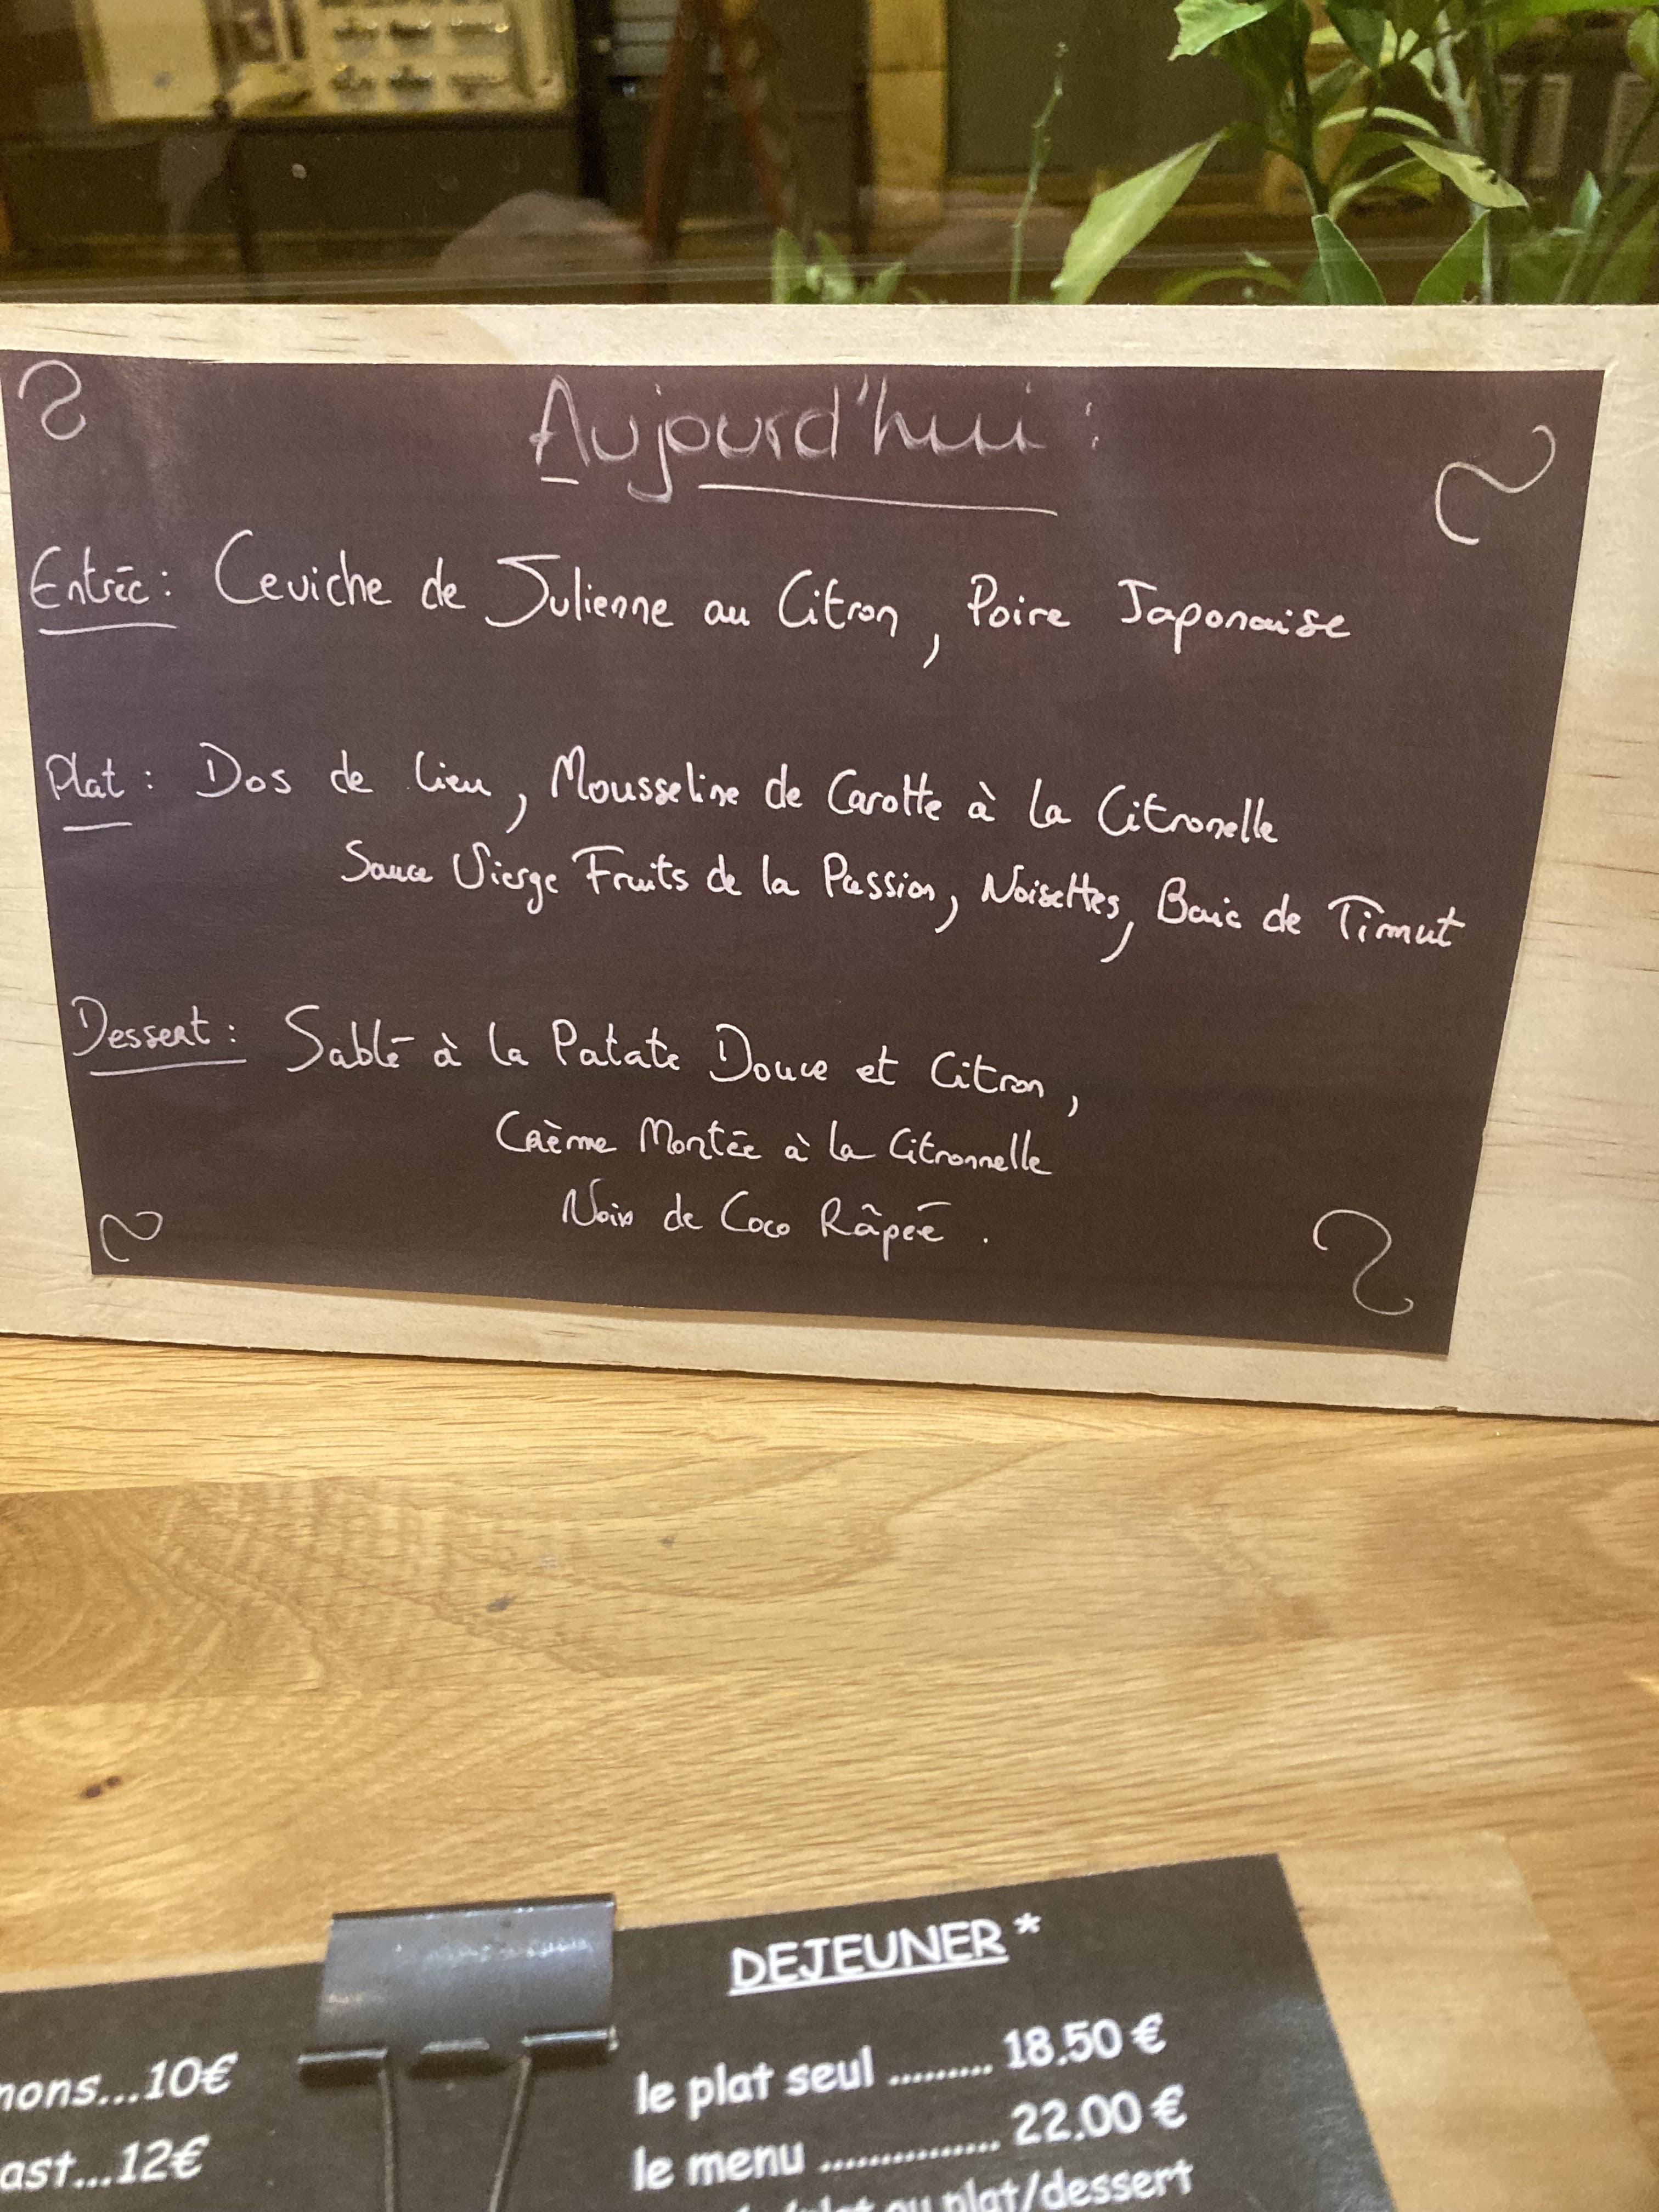 Aujourd'hui :
Entrée : Ceviche de Julienne au Citron, Poire Japonaise
Plat : Dos de lieu, Mousseline de Carotte à la Citronelle
Sauce Vierge Fruits de la Passion, Noisettes, Baie de Timut
Dessert : Sablé à la Patate Douce et Citron,
Crème Montée à la Citronnelle
Noix de Coco Râpée .
DEJEUNER *
le plat seul ......... 18.50 €
le menu ............... 22.00 €
plat/dessert
...10€
...12€